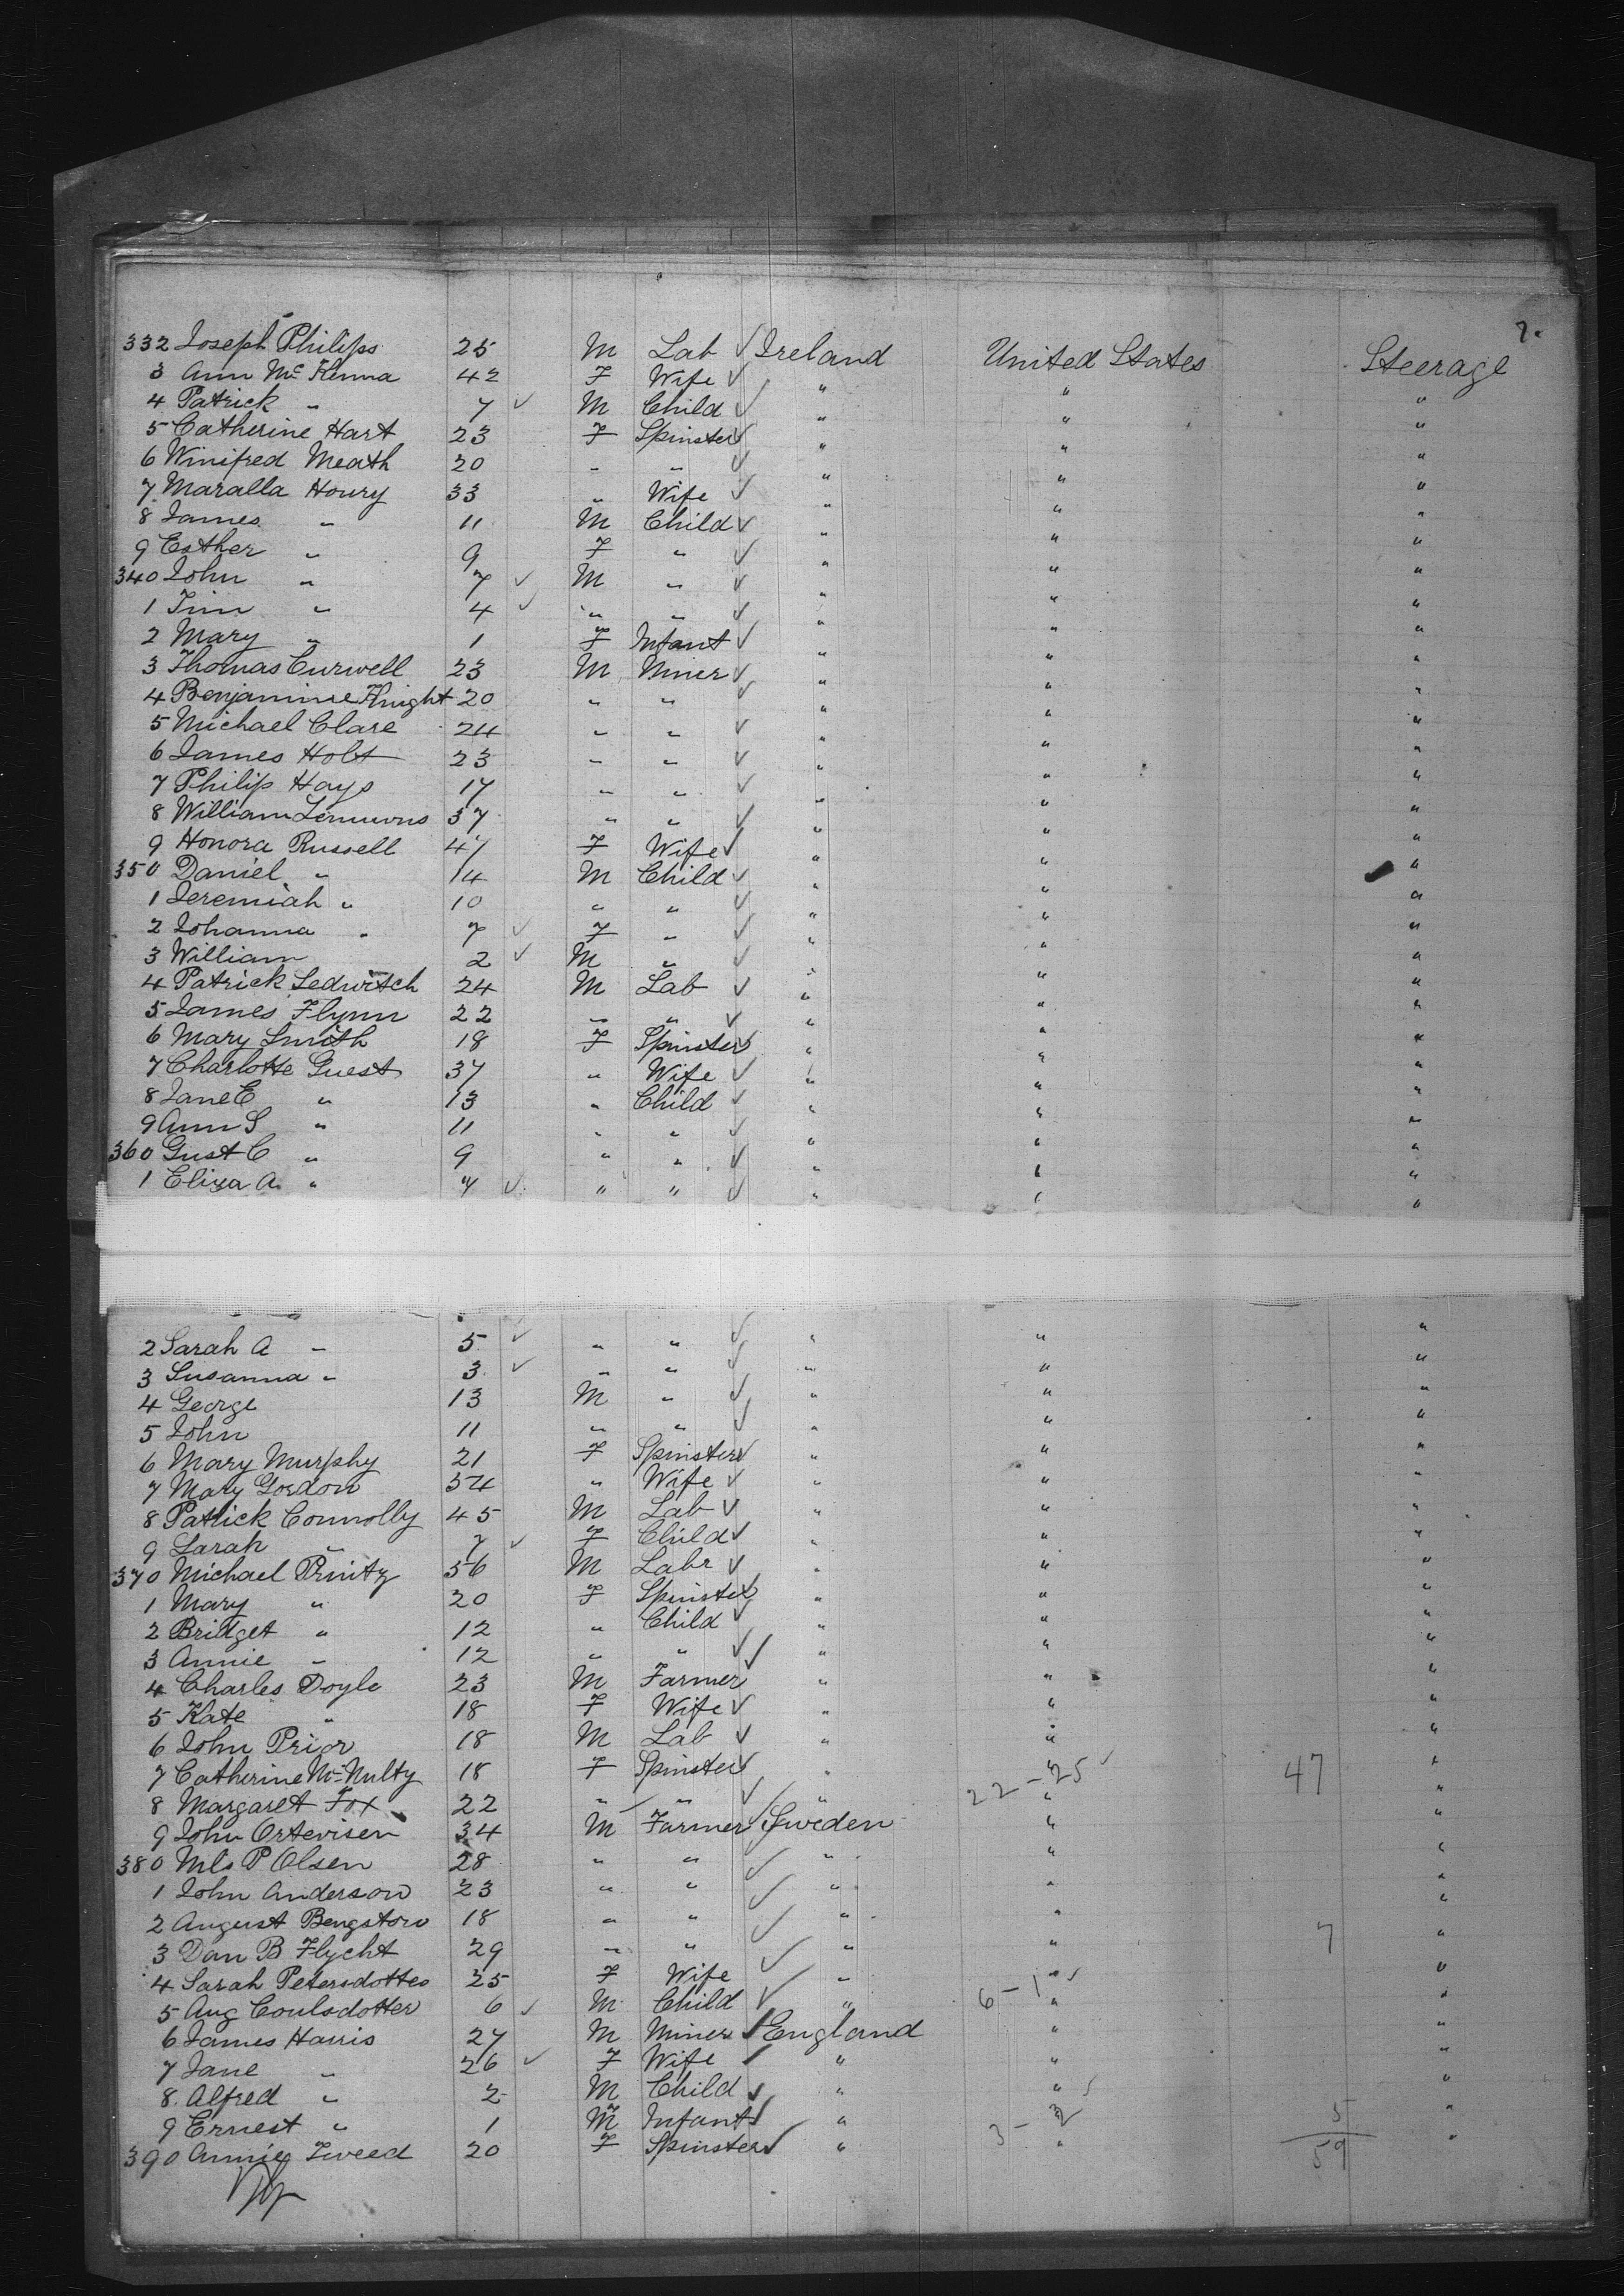 7.
332 Joseph Philips 25 M Lab ✓ Ireland United States Steerage
3 Ann McKenna 42 F Wife ✓ " " "
4 Patrick " 7 ✓ M Child ✓ " " "
5 Catherine Hart 23 F Spinster ✓ " " "
6 Winifred Meath 20 " " ✓ " " "
7 Maralla Houry 33 " Wife ✓ " " "
8 James " 11 M Child ✓ " " "
9 Esther " 9 F " ✓ " " "
340 John " 7 ✓ M " ✓ " " "
1 Tim " 4 ✓ " " ✓ " " "
2 Mary " 1 F Infant ✓ " " "
3 Thomas Curwell 23 M Miner ✓ " " "
4 Benjamine Knight 20 " " ✓ " " "
5 Michael Clare 24 " " ✓ " " "
6 James Holt 23 " " ✓ " " "
7 Philip Hays 17 " " ✓ " " "
8 William 37 " " ✓ " " "
9 Honora Russell 47 F Wife ✓ " " "
350 Daniel " 14 M Child ✓ " " "
1 Jeremiah " 10 " " ✓ " " "
2 Johanna " 7 ✓ F " ✓ " " "
3 William 2 ✓ M " ✓ " " "
4 Patrick Ledwitch 24 M Lab ✓ " " "
5 James Flynn 22 " " ✓ " " "
6 Mary Smith 18 F Spinster ✓ " " "
7 Charlotte Guest 37 " Wife ✓ " " "
8 Jane E " 13 " Child ✓ " " "
9 Ann S " 11 " " ✓ " " "
360 Gust C " 9 " " ✓ " " "
1 Eliza A. " 7 ✓ " " ✓ " " "
2 Sarah A " 5 ✓ " " ✓ " " "
3 Susanna " 3 ✓ " " ✓ " " "
4 George 13 M " ✓ " " "
5 John 11 " " ✓ " " "
6 Mary Murphy 21 F Spinster ✓ " " "
7 Mary Gordon 34 " Wife ✓ " " "
8 Patrick Connolly 45 M Lab ✓ " " "
9 Sarah " 7 ✓ F Child ✓ " " "
370 Michael Prinity 56 M Labr ✓ " " "
1 Mary " 20 F Spinster ✓ " " "
2 Bridget " 12 " Child ✓ " " "
3 Annie " 12 " " ✓ " " "
4 Charles Doyle 23 M Farmer ✓ " " "
5 Kate " 18 F Wife ✓ " " "
6 John Prior 18 M Lab ✓ " " "
7 Catherine McNulty 18 F Spinster ✓ " " 22-25 ✓ 47 "
8 Margaret Fox 22 " " ✓ " " "
9 John Ortevisen 34 M Farmer ✓ Sweden " "
380 Nils P Olsen 28 " " ✓ " " "
1 John Anderson 23 " " ✓ " " "
2 August Bengstorv 18 " " ✓ " " "
3 Dan B Flycht 29 " " ✓ " " 7 "
4 Sarah Petersdotter 25 F Wife ✓ " " "
5 Aug Coulsdotter 6 ✓ M Child ✓ " 6-1 ✓ " "
6 James Harris 27 M Miner ✓ England " "
7 Jane " 26 ✓ F Wife ✓ " " "
8 Alfred " 2 M Child ✓ " " "
9 Ernest " 1 M Infant ✓ " 3-2 ✓ 5 "
390 Annie Tweed 20 F Spinster ✓ " " 59 "